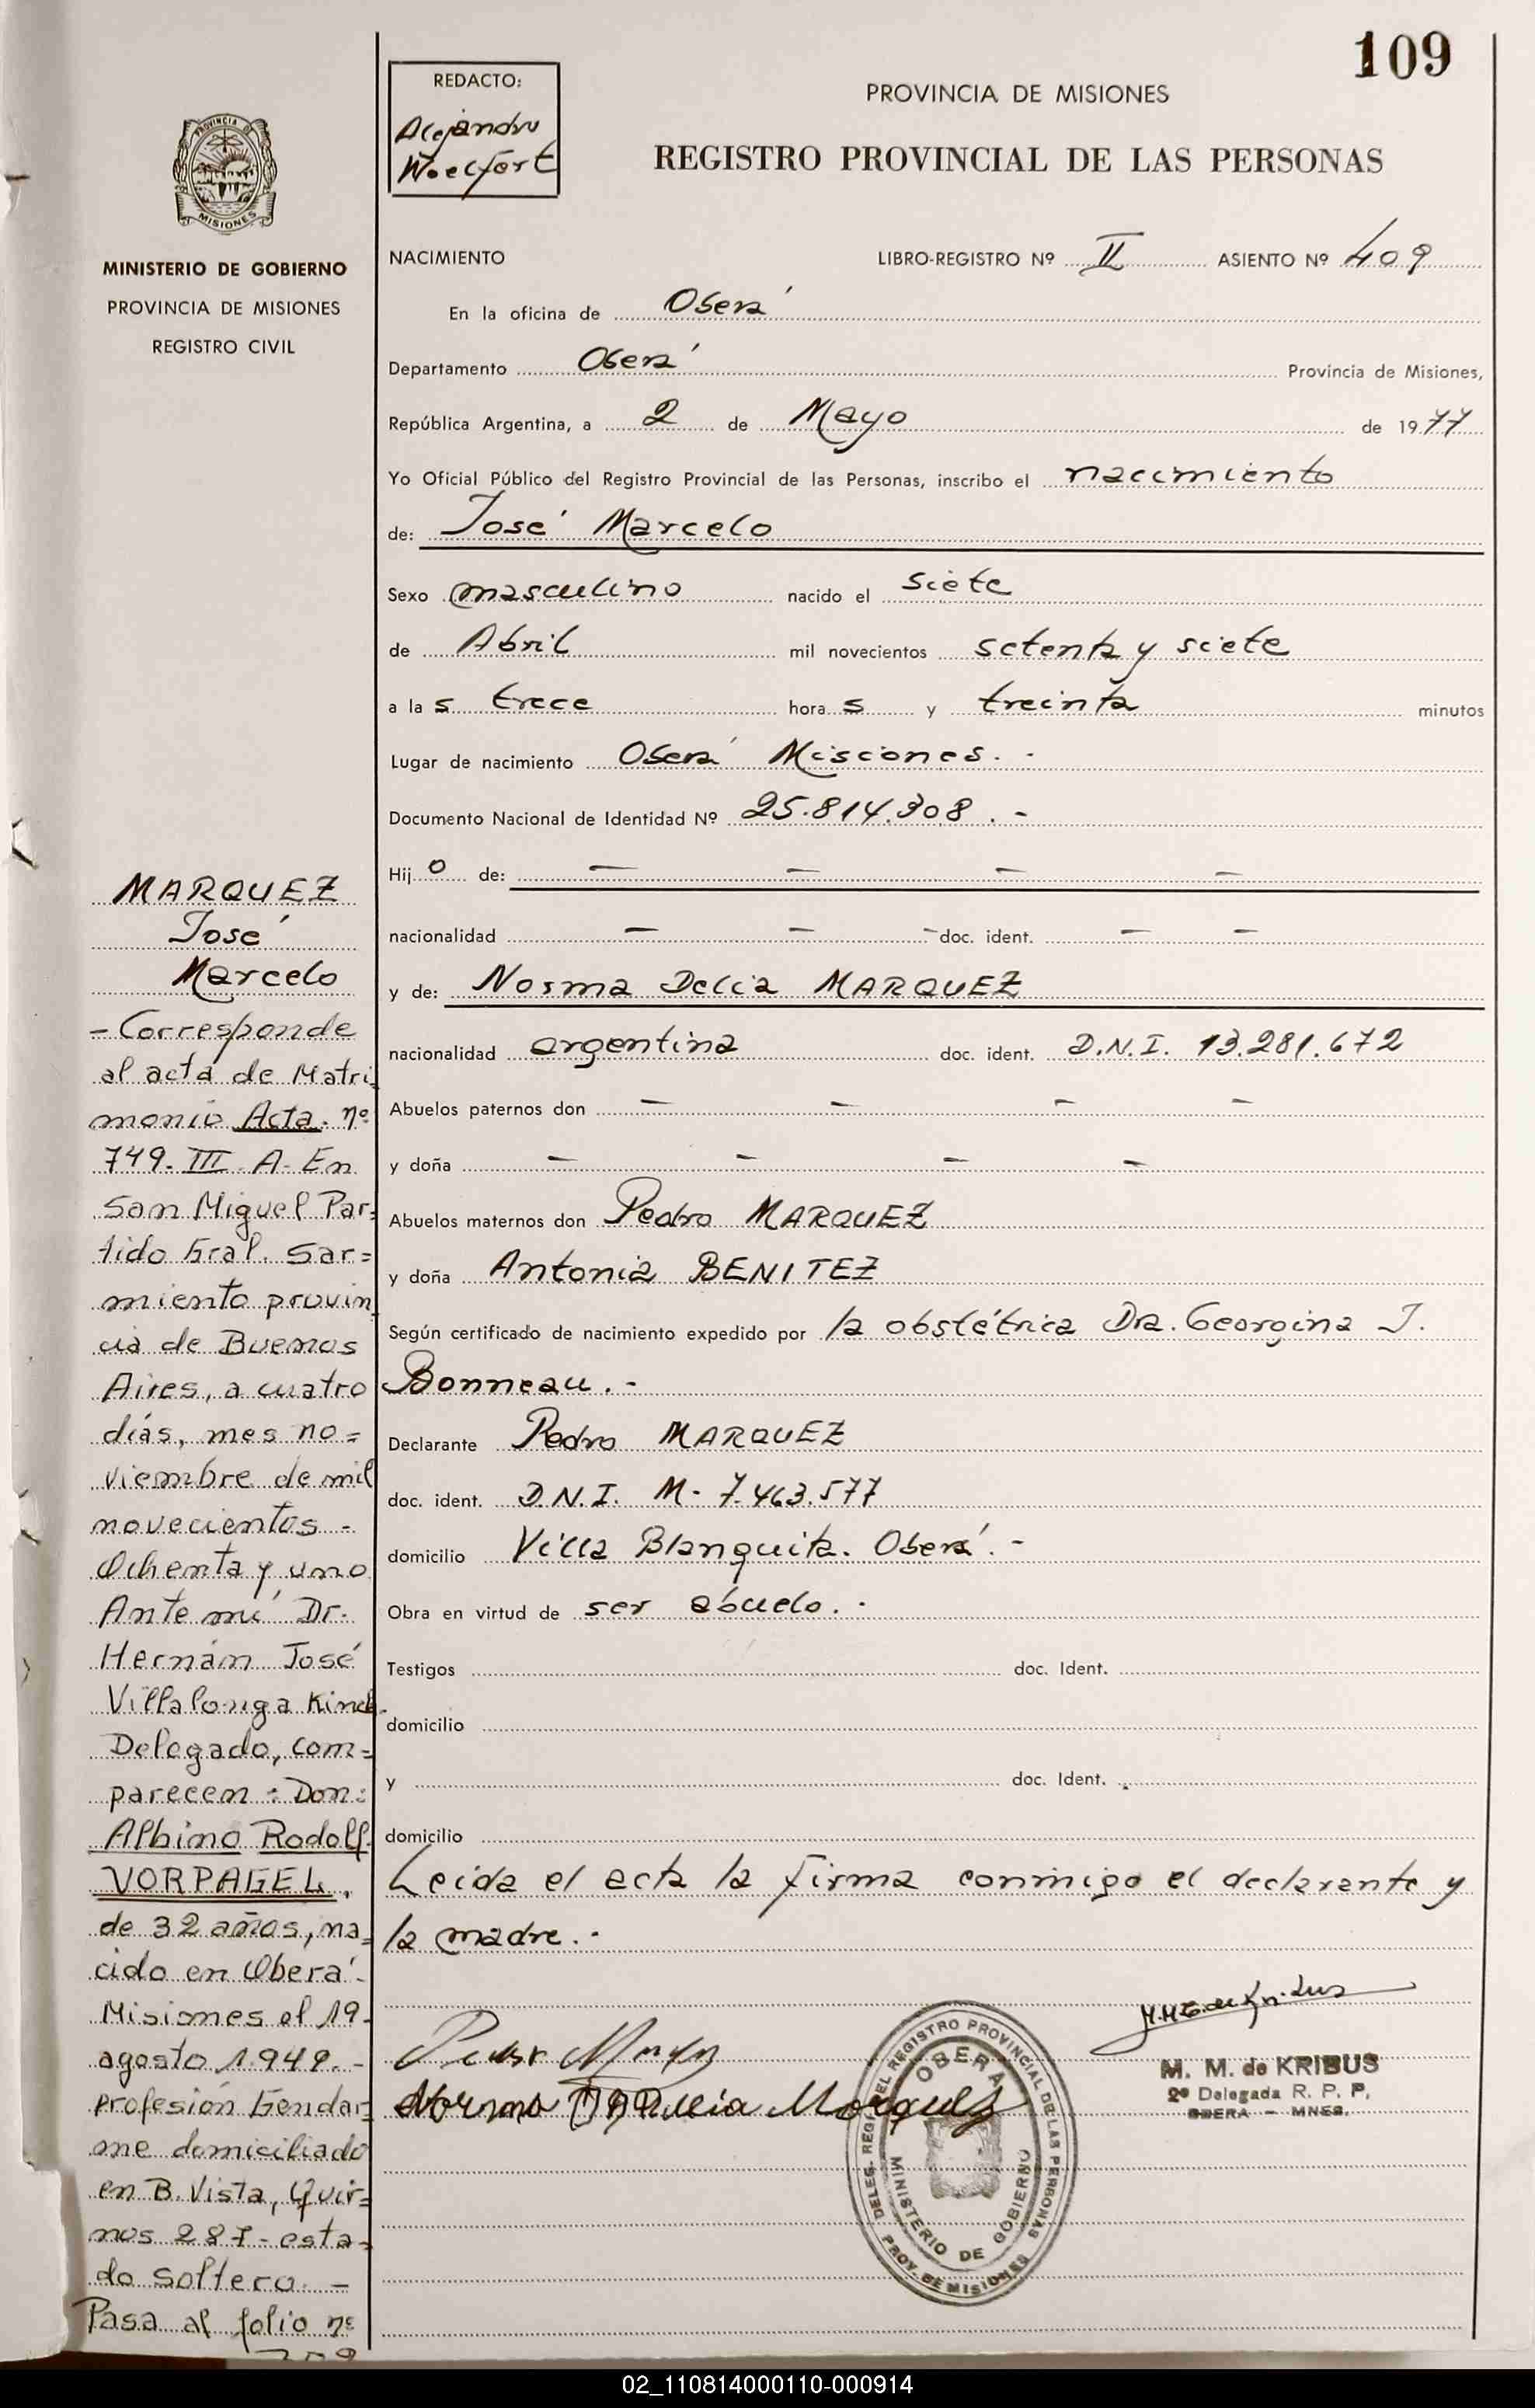 109
REDACTO:
Alejandro
Woelfert
PROVINCIA DE MISIONES
REGISTRO PROVINCIAL DE LAS PERSONAS
PROVINCIA DE
MISIONES
MINISTERIO DE GOBIERNO
PROVINCIA DE MISIONES
REGISTRO CIVIL
NACIMIENTO LIBRO-REGISTRO Nº II ASIENTO Nº 409
En la oficina de Oberá
Departamento Oberá Provincia de Misiones,
República Argentina, a 2 de Mayo de 1977
Yo Oficial Público del Registro Provincial de las Personas, inscribo el nacimiento
de: José Marcelo
Sexo masculino nacido el siete
de Abril mil novecientos setenta y siete
a la s trece hora s y treinta minutos
Lugar de nacimiento Oberá Misiones. -
Documento Nacional de Identidad Nº 25.814.308. -
Hij o de: — — — —
nacionalidad — — — doc. ident. — —
y de: Norma Delia MARQUEZ
nacionalidad argentina doc. ident. D.N.I. 13.281.672
Abuelos paternos don — — — —
y doña — — — —
Abuelos maternos don Pedro MARQUEZ
y doña Antonia BENITEZ
Según certificado de nacimiento expedido por la obstétrica Dra. Georgina J.
Bonneau. -
Declarante Pedro MARQUEZ
doc. ident. D.N.I. M- 7.463.577
domicilio Villa Blanquita. Oberá. -
Obra en virtud de ser abuelo. -
Testigos doc. Ident.
domicilio
y doc. Ident.
domicilio
Leída el acta la firma conmigo el declarante y
la madre. -
M. M. de KRIBUS
2º Delegada R. P. P.
OBERA - MNES.
DELEG. REG. DEL REGISTRO PROVINCIAL DE LAS PERSONAS
OBERA
MINISTERIO DE GOBIERNO
PROV. DE MISIONES
MARQUEZ
José
Marcelo
- Corresponde
al acta de Matri
monio Acta. nº
749. III A- En
San Miguel Par=
tido Gral. Sar=
miento provin
cia de Buenos
Aires, a cuatro
días, mes no=
viembre de mil
novecientos -
Ochenta y uno
Ante mí Dr.
Hernán José
Villalonga
Delegado, com=
parecen: Don:
Albino Rodolf.
VORPAGEL,
de 32 años, na=
cido en Oberá -
Misiones el 19-
agosto 1.949. -
profesión Gendar=
me domiciliado
en B. Vista, Quir=
nos 287 - esta=
do soltero. -
Pasa al folio nº
02_110814000110-000914